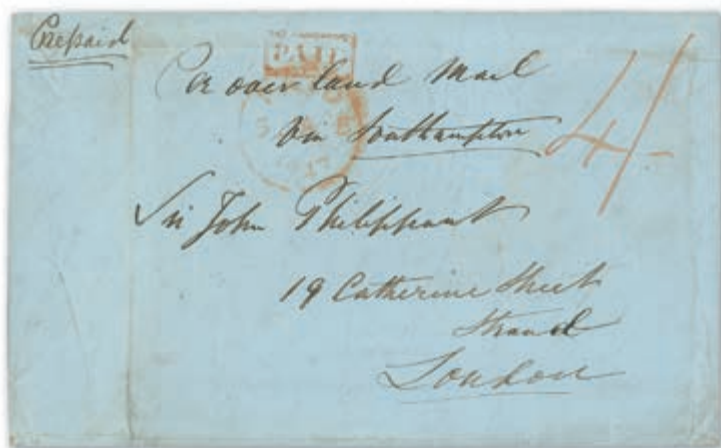 Prepaid
PAID
Per over land Mail
Via Southampton
4/-
Sir John Philippart
19 Catherine Street
Strand
London